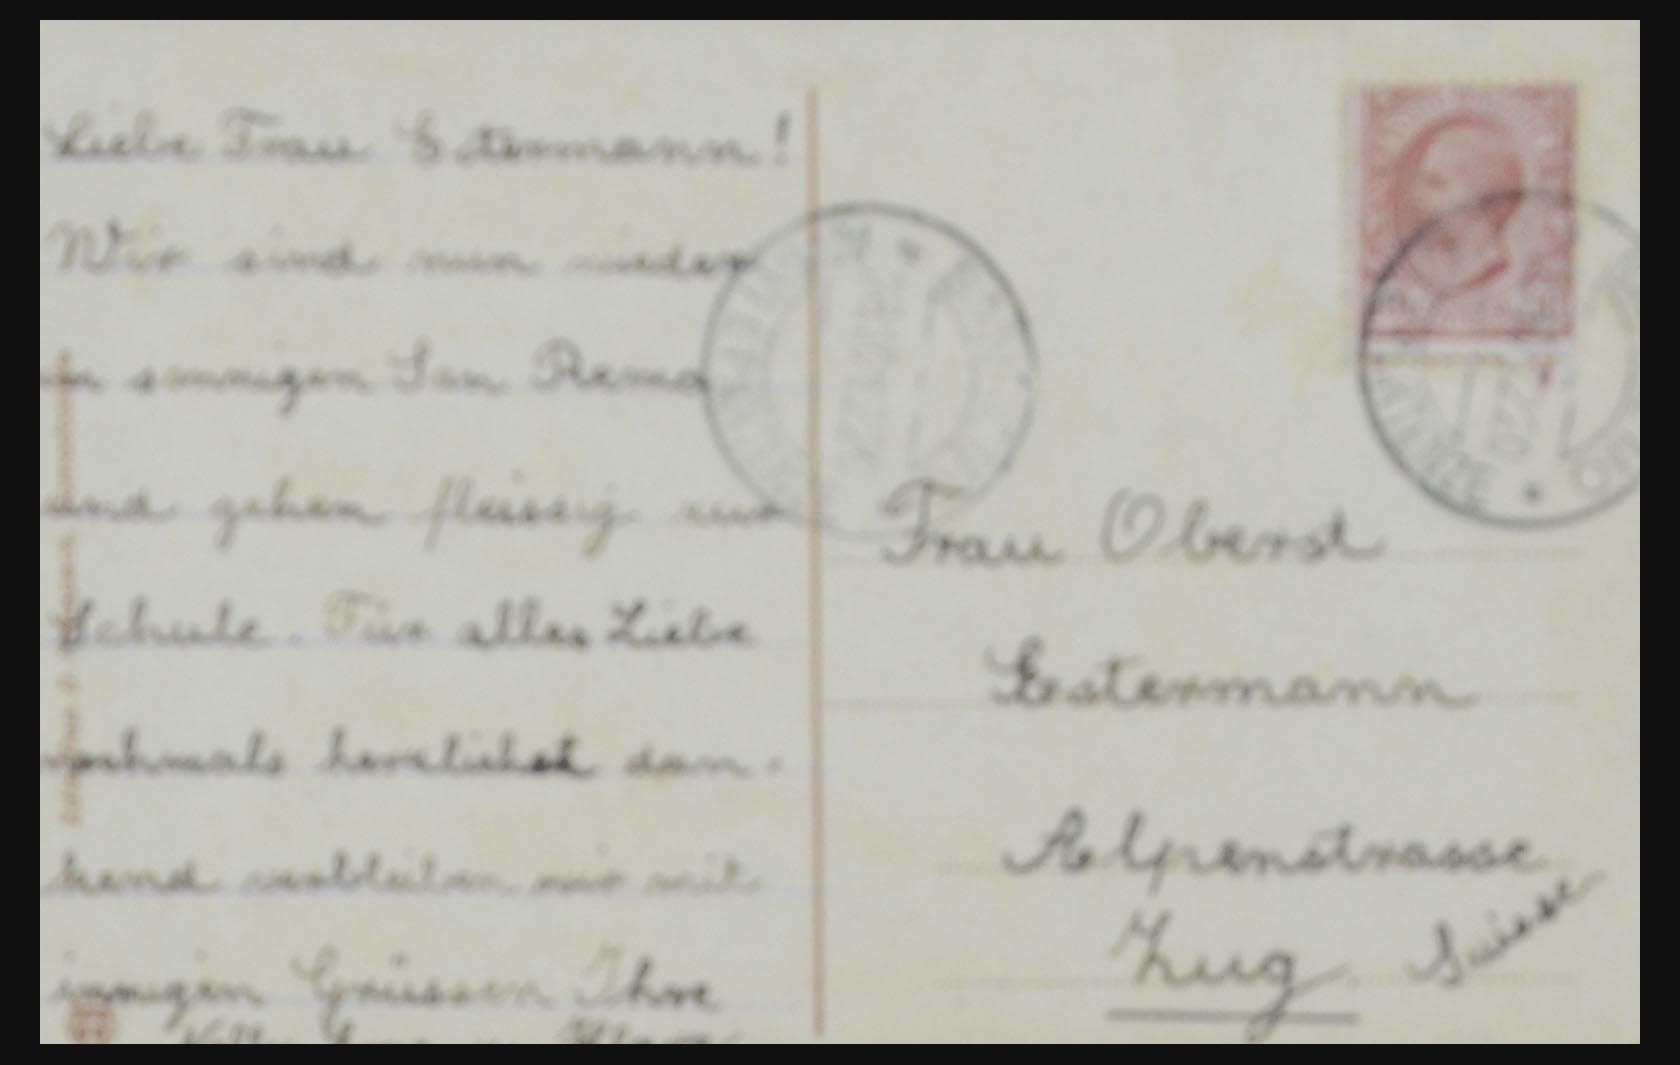 Liebe Frau Estermann!
Wir sind nun wieder
in sonnigen San Remo
und gehen fleissig zur
Schule. Für alles Liebe
nochmals herzlichst dan-
kend verbleiben wir mit
innigen Grüssen Ihre
Frau Oberst
Estermann
Alpenstrasse
Zug Suisse